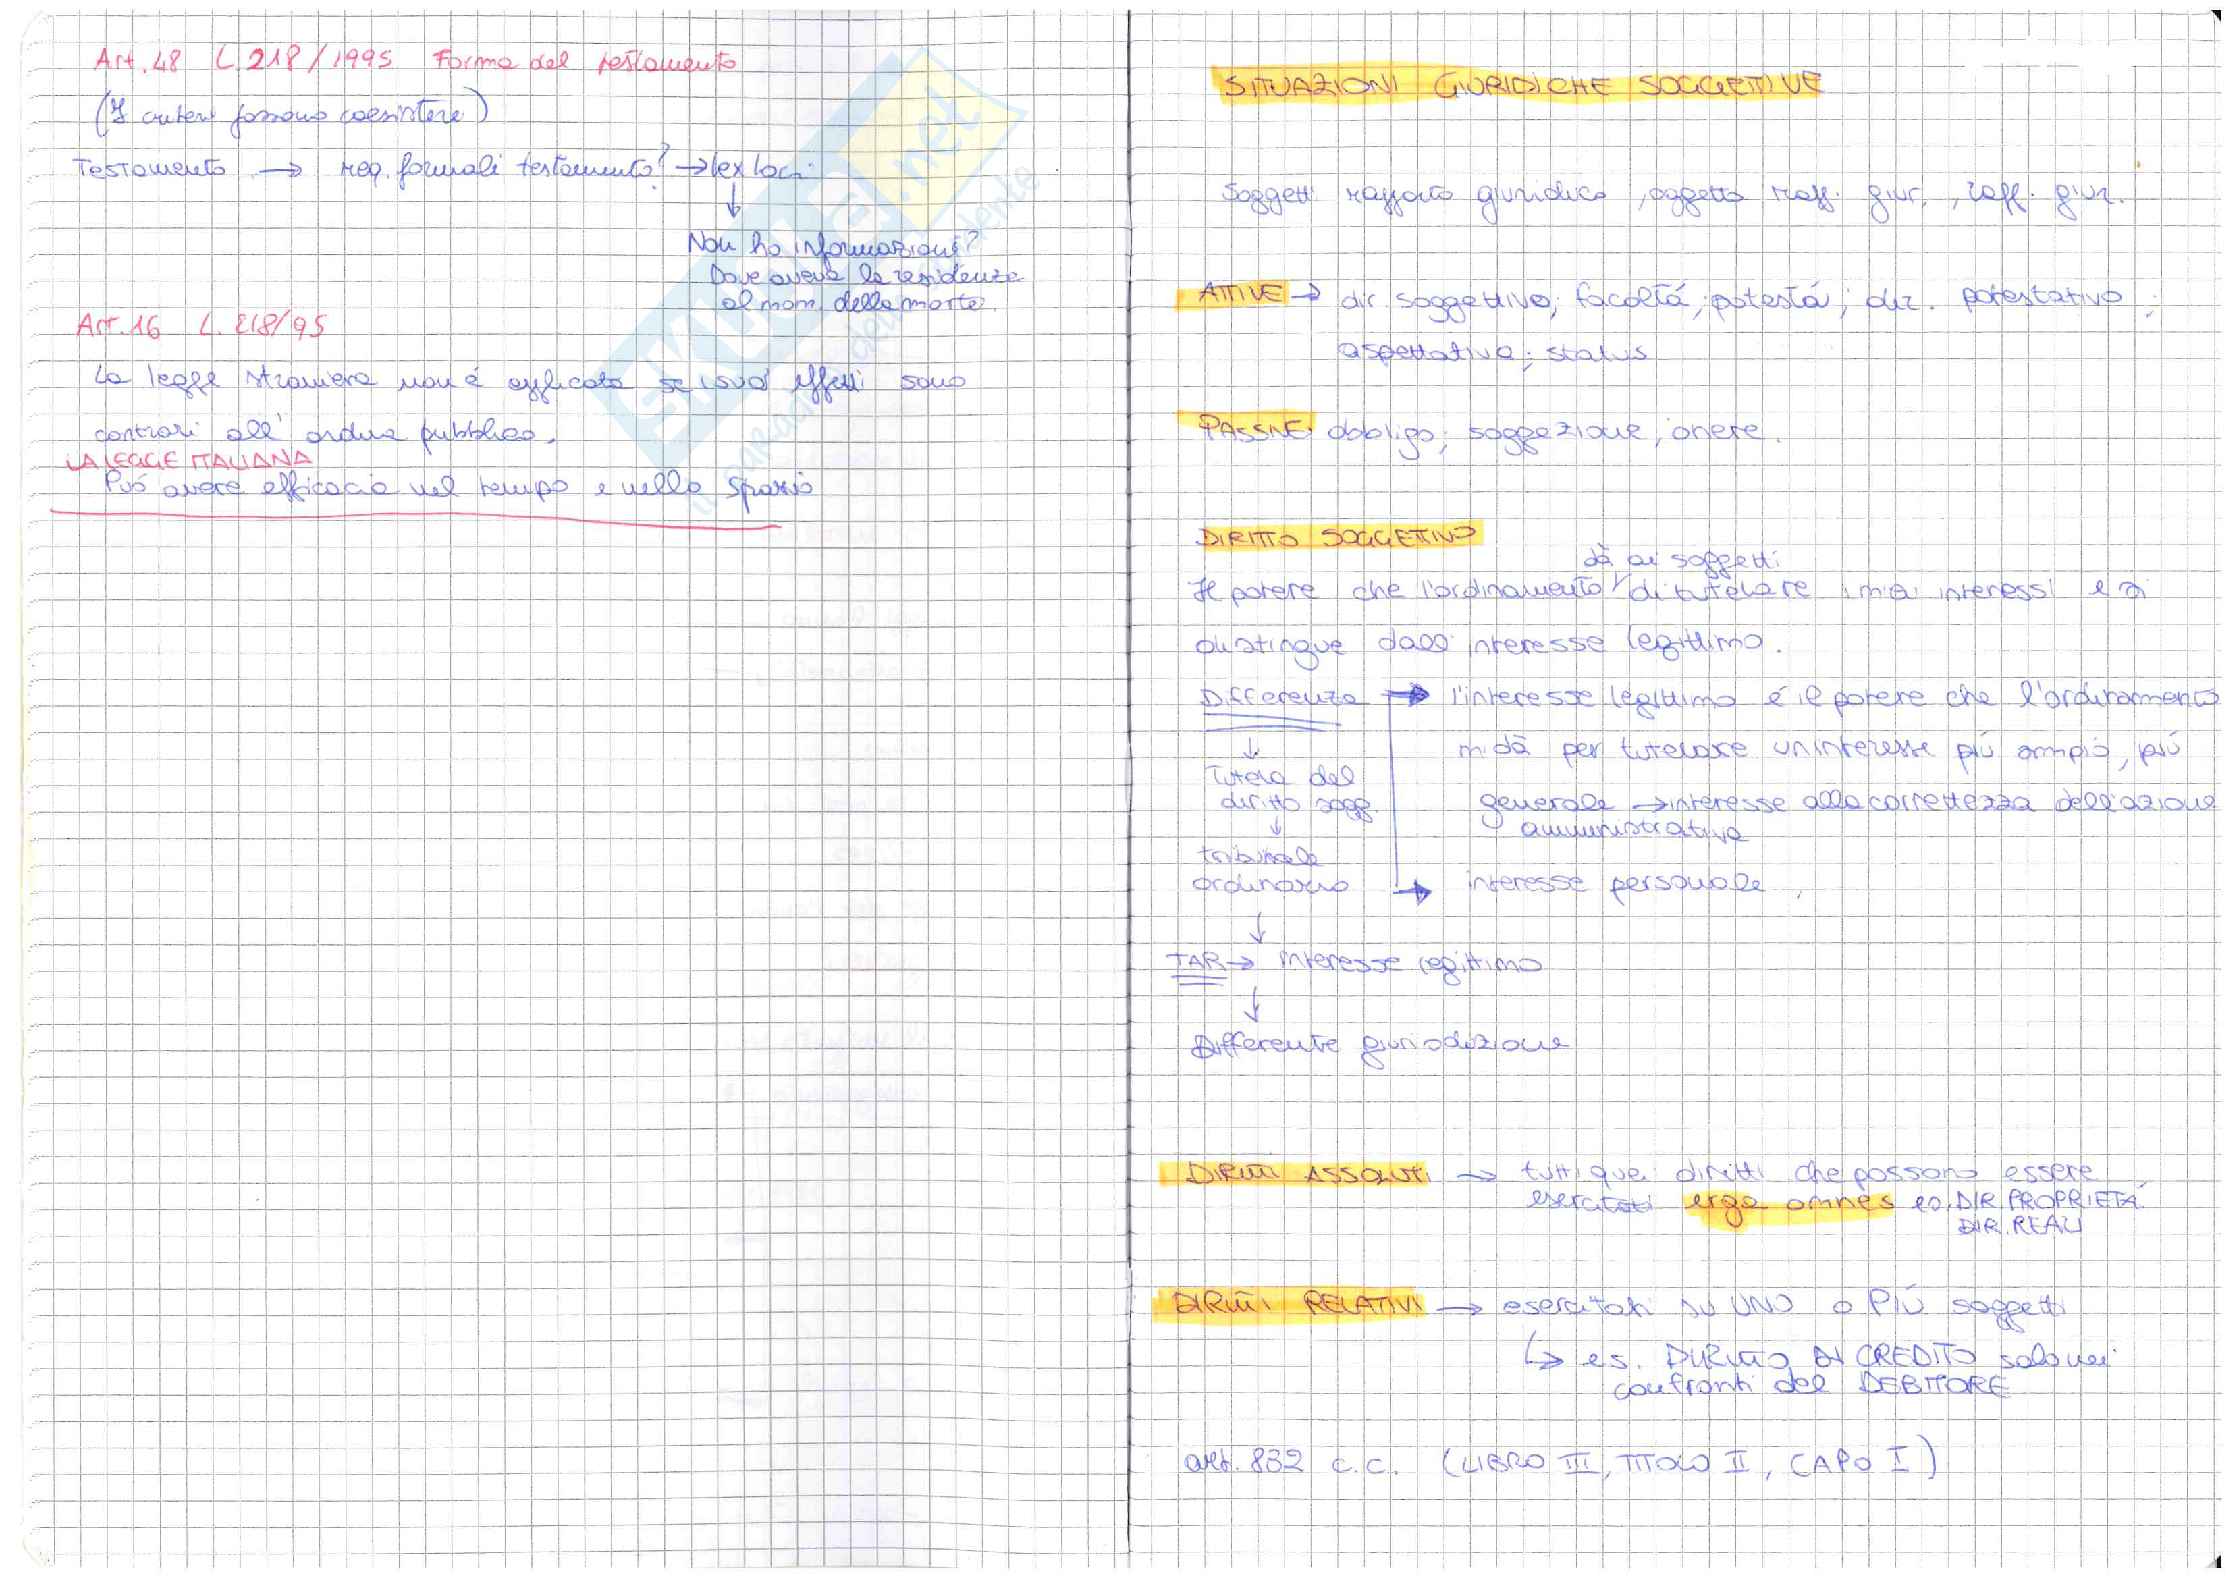 Art. 48 L. 218/1995 Forma del testamento
(I criteri possono coesistere)
Testamento → req. formali testamento? → lex loci
↓
Non ho informazioni?
Dove aveva la residenza
al mom. della morte.
Art. 16 L. 218/95
La legge straniera non è applicata se i suoi effetti sono
contrari all'ordine pubblico.
LA LEGGE ITALIANA
Può avere efficacia nel tempo e nello spazio
SITUAZIONI GIURIDICHE SOGGETTIVE
Soggetti rapporto giuridico, oggetto rapp. giur., rapp. giur.
ATTIVE → dir. soggettivo; facoltá; potestá; dir. potestativo;
aspettativa; status
PASSIVE: obbligo; soggezione; onere.
DIRITTO SOGGETTIVO
dà ai soggetti
Il potere che l'ordinamento di tutelare i miei interessi e si
distingue dall'interesse legittimo.
Differenza → l'interesse legittimo é il potere che l'ordinamento
mi dà per tutelare un interesse piú ampio, piú
generale → interesse alla correttezza dell'azione
amministrativa
↓
Tutela del
diritto sogg.
↓
tribunale
ordinario → interesse personale
↓
TAR → interesse legittimo
↓
Differente giurisdizione
DIRITTI ASSOLUTI → tutti quei diritti che possono essere
esercitati erga omnes es. DIR. PROPRIETÁ
DIR. REALI
DIRITTI RELATIVI → esercitati su UNO o PIÚ soggetti
↳ es. DIRITTO DI CREDITO solo nei
confronti del DEBITORE
art. 832 c.c. (LIBRO III, TITOLO II, CAPO I)
.net